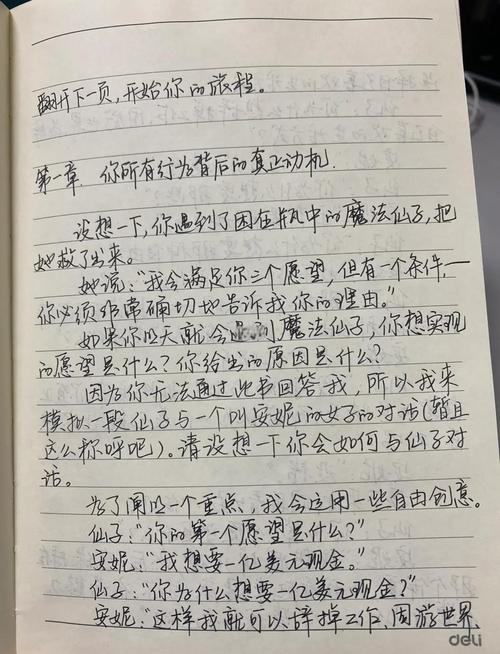 翻开下一页,开始你的旅程。
第一章. 你所有行为背后的真正动机.
设想一下,你遇到了困在瓶中的魔法仙子,把
她救了出来。
她说:“我会满足你三个愿望,但有一个条件——
你必须非常确切地告诉我你的理由。”
如果你明天就会 到魔法仙子,你想实现
的愿望是什么?你给出的原因是什么?
因为你无法通过此书回答我,所以我来
模拟一段仙子与一个叫安妮的女子的对话(暂且
这么称呼吧)。请设想一下你会如何与仙子对
话。
为了阐明一个重点,我会运用一些自由创意。
仙子:“你的第一个愿望是什么?”
安妮:“我想要一亿美元现金。”
仙子:“你为什么想要一亿美元现金?”
安妮:“这样我就可以辞掉工作、周游世界、
deli